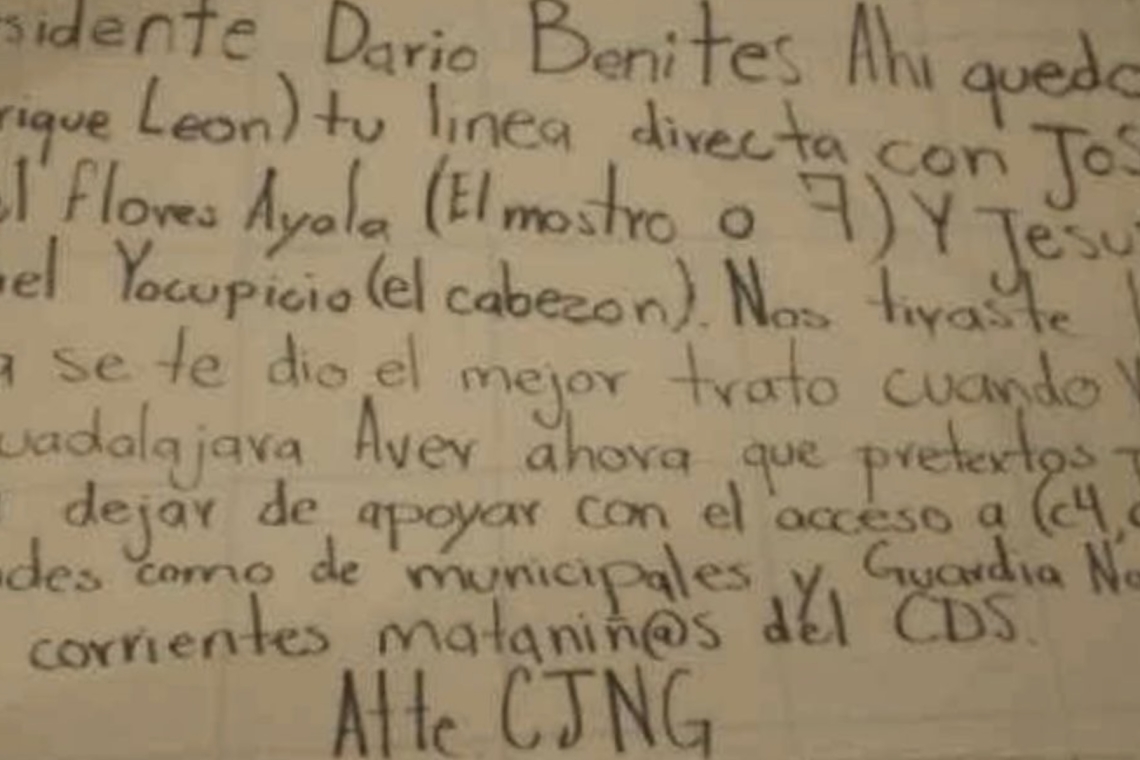 sidente Dario Benites Ahi queda
rique Leon) tu linea directa con Jos
l Flores Ayala (El mostro o 7) Y Jesu
el Yocupicio (el cabezon). Nos tiraste
a se te dio el mejor trato cuando
uadalajara Aver ahora que pretextos
dejar de apoyar con el acceso a (c4,
des como de municipales y Guardia Na
corrientes mataniñ@s del CDS.
Atte CJNG